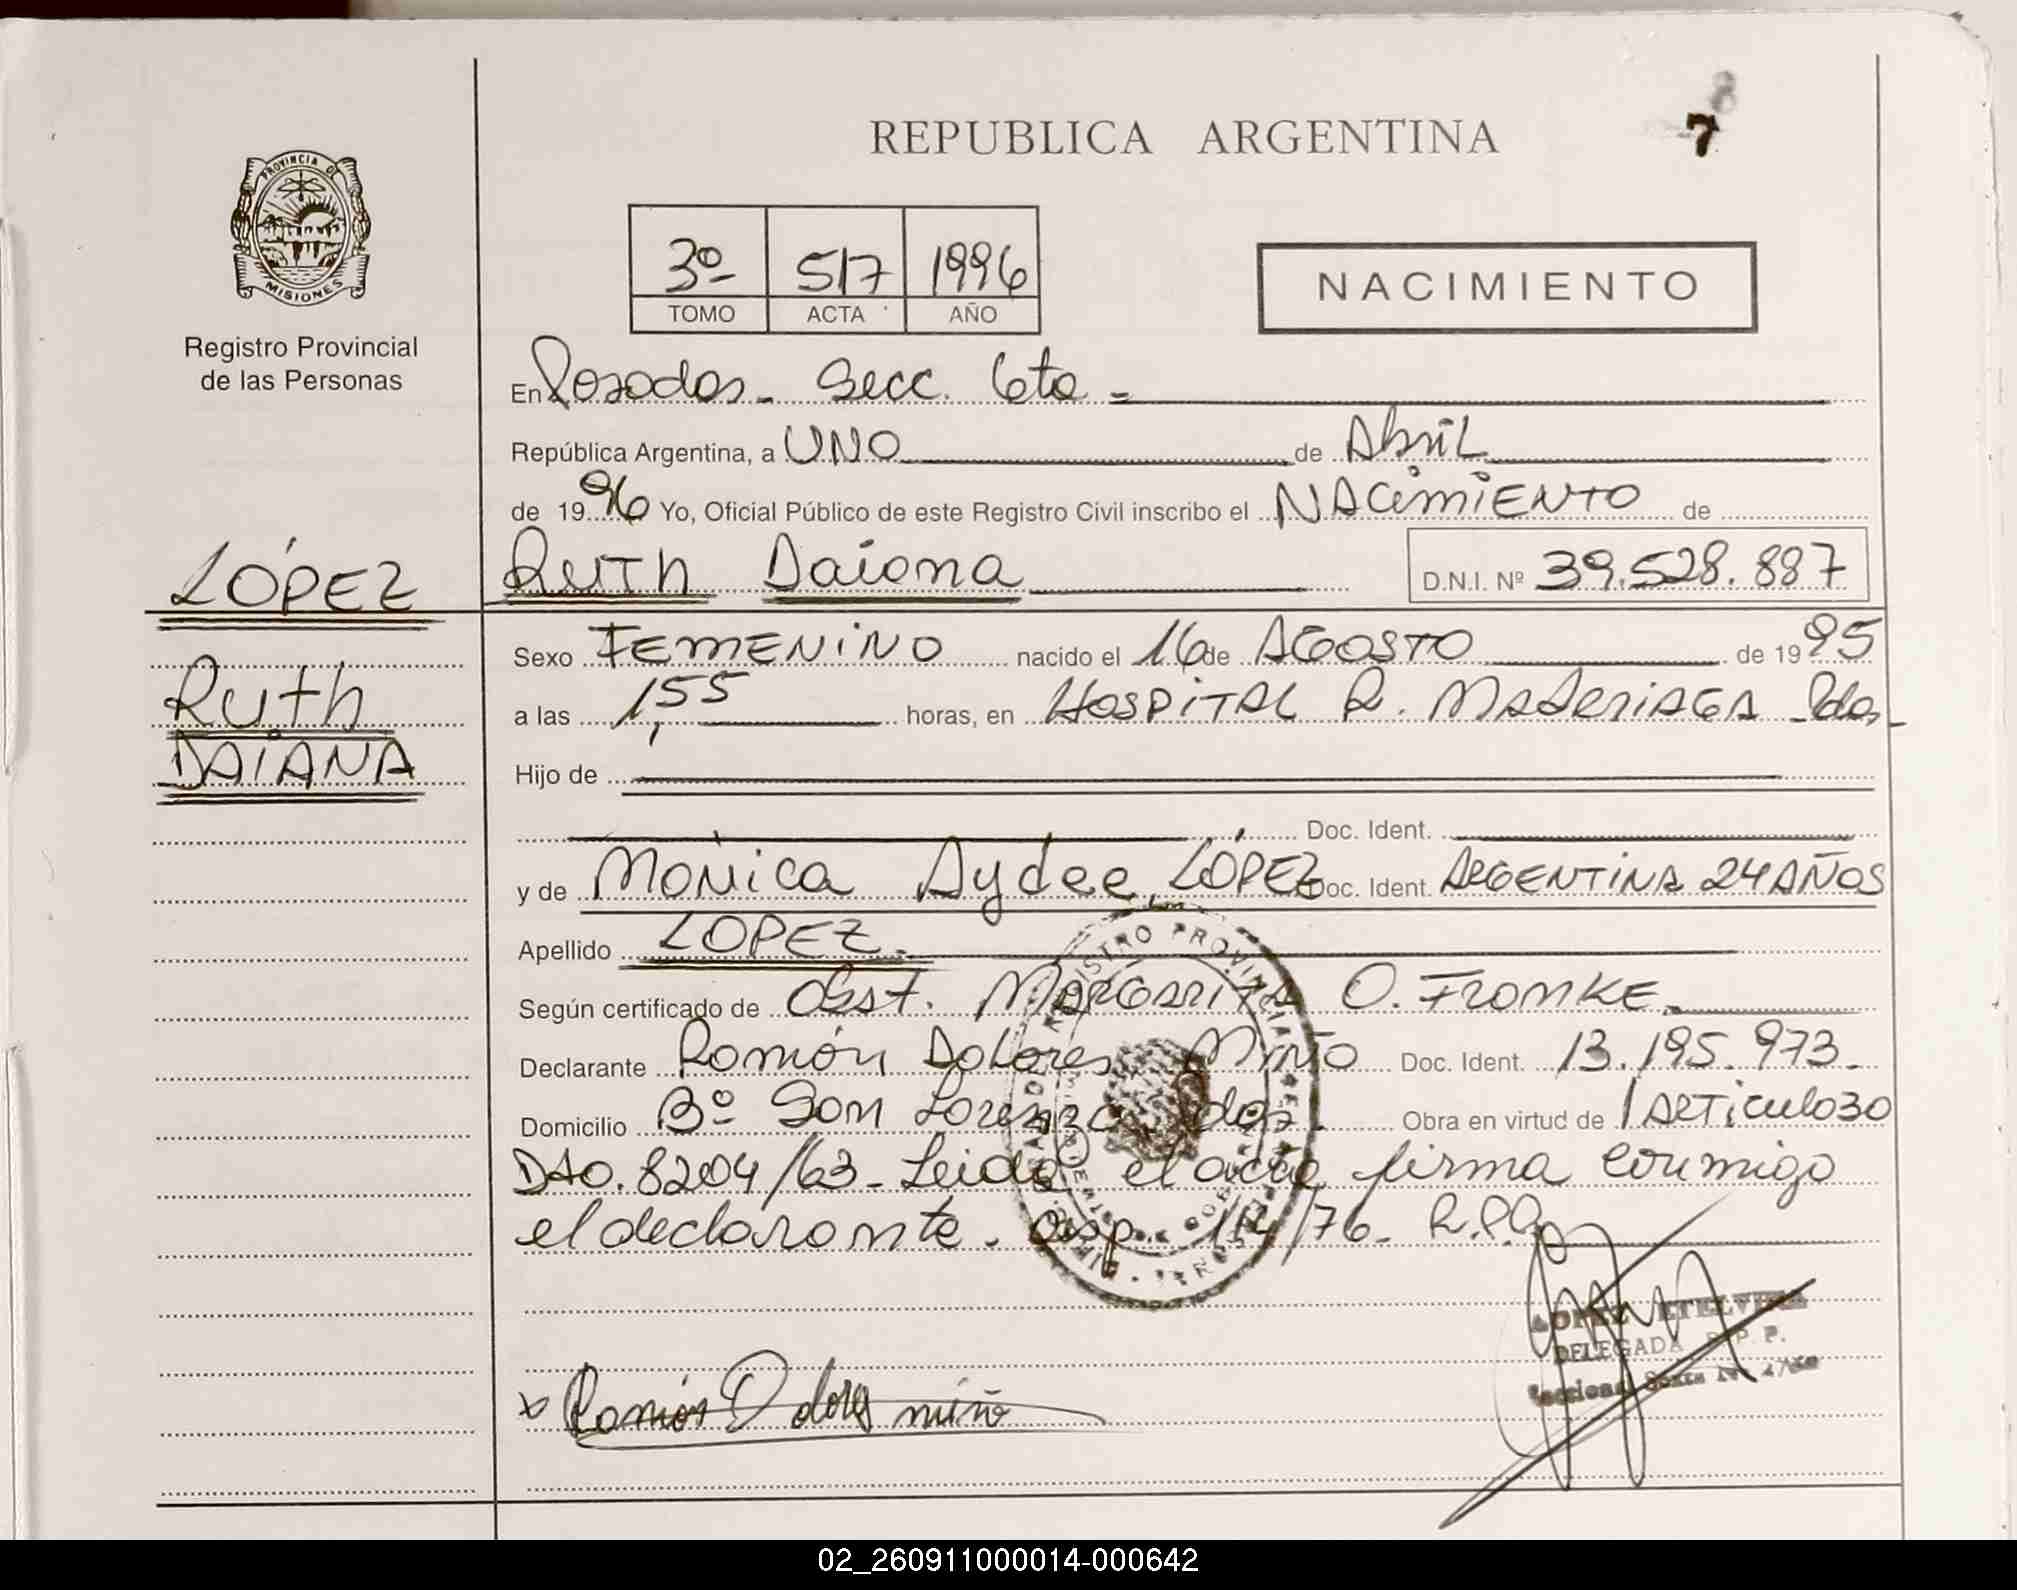 7
REPUBLICA ARGENTINA
PROVINCIA DE
MISIONES
Registro Provincial
de las Personas
3º 517 1996
TOMO ACTA AÑO
NACIMIENTO
En Posadas - Secc. 6ta -
República Argentina, a UNO de Abril
de 1996 Yo, Oficial Público de este Registro Civil inscribo el NACIMIENTO de
LÓPEZ
Ruth
DAIANA
Ruth Daiana D.N.I. Nº 39.528.887
Sexo FEMENINO nacido el 16 de AGOSTO de 1995
a las 1,55 horas, en HOSPITAL R. MADERIAGA Pdas-
Hijo de
Doc. Ident.
y de Mónica Aydee LÓPEZ Doc. Ident. ARGENTINA 24 AÑOS
Apellido LOPEZ.
Según certificado de Obst. MARGARITA O. FROMKE.
Declarante Ramón Dolores Miño Doc. Ident. 13.195.973.
Domicilio Bº San Lorenzo Pdas. Obra en virtud de ARTiculo 30
Dto. 8204/63 - Leida el acta firma conmigo
el declarante. Disp. 114/76 - R.P.P.
REGISTRO PROVINCIAL DE
LOPEZ ETELVINA
DELEGADA R. P. P.
Seccional Sexta
x Ramón Dolores miño
02_260911000014-000642